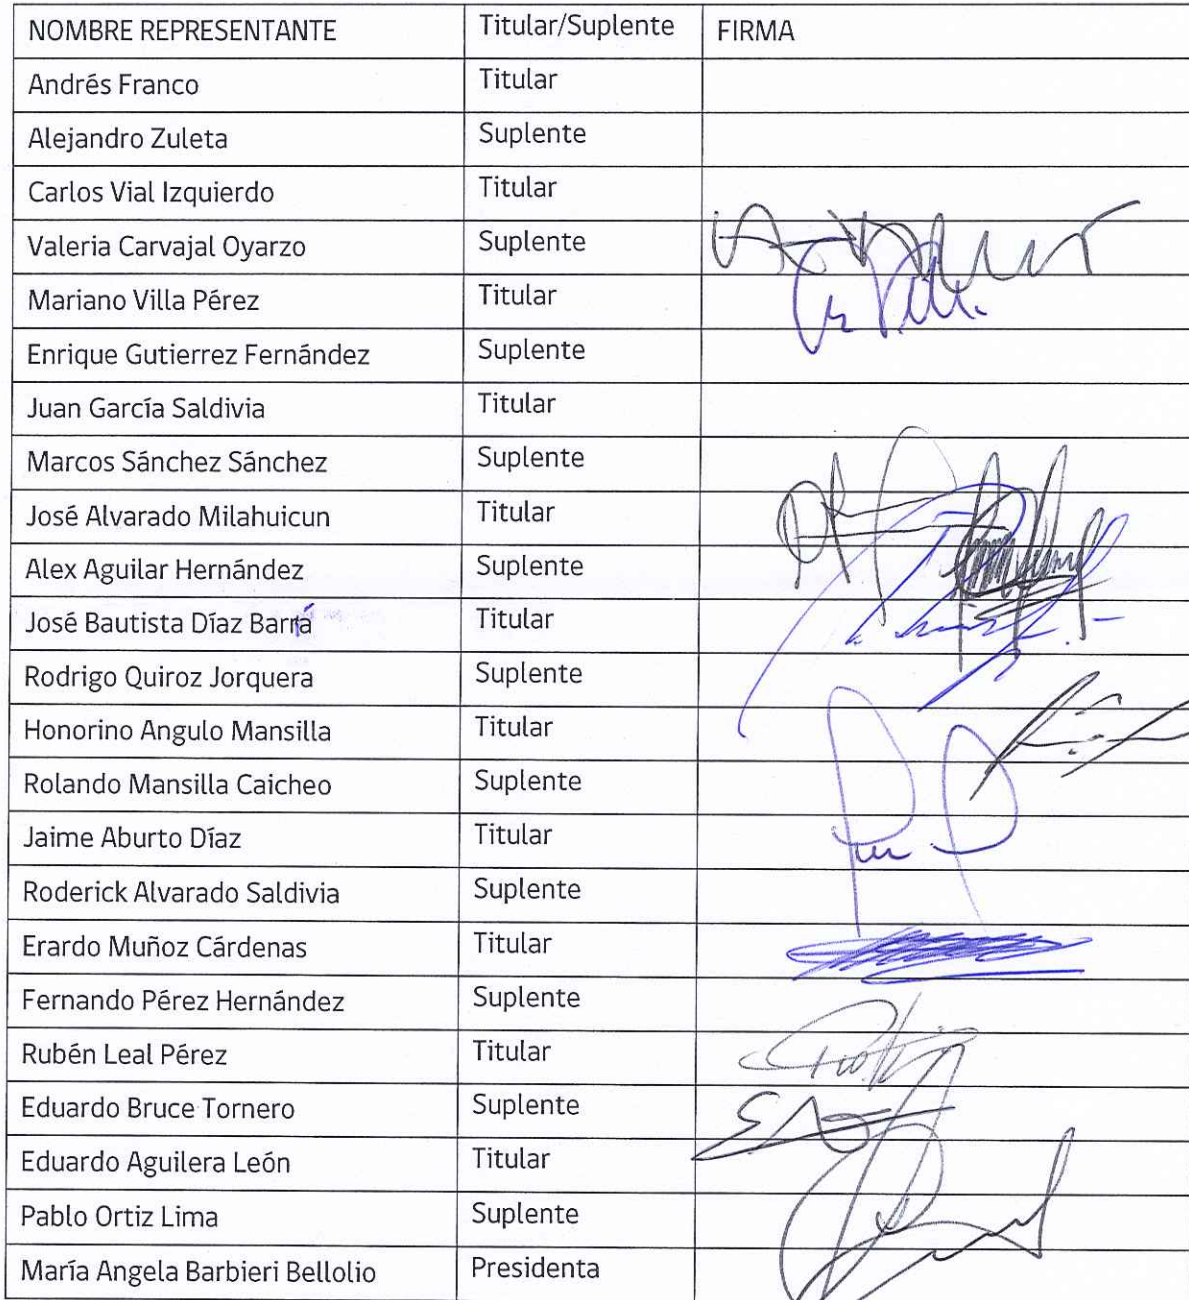 NOMBRE REPRESENTANTE Titular/Suplente FIRMA
Andrés Franco Titular
Alejandro Zuleta Suplente
Carlos Vial Izquierdo Titular
Valeria Carvajal Oyarzo Suplente
Mariano Villa Pérez Titular
Enrique Gutierrez Fernández Suplente
Juan García Saldivia Titular
Marcos Sánchez Sánchez Suplente
José Alvarado Milahuicun Titular
Alex Aguilar Hernández Suplente
José Bautista Díaz Barrá Titular
Rodrigo Quiroz Jorquera Suplente
Honorino Angulo Mansilla Titular
Rolando Mansilla Caicheo Suplente
Jaime Aburto Díaz Titular
Roderick Alvarado Saldivia Suplente
Erardo Muñoz Cárdenas Titular
Fernando Pérez Hernández Suplente
Rubén Leal Pérez Titular
Eduardo Bruce Tornero Suplente
Eduardo Aguilera León Titular
Pablo Ortiz Lima Suplente
María Angela Barbieri Bellolio Presidenta